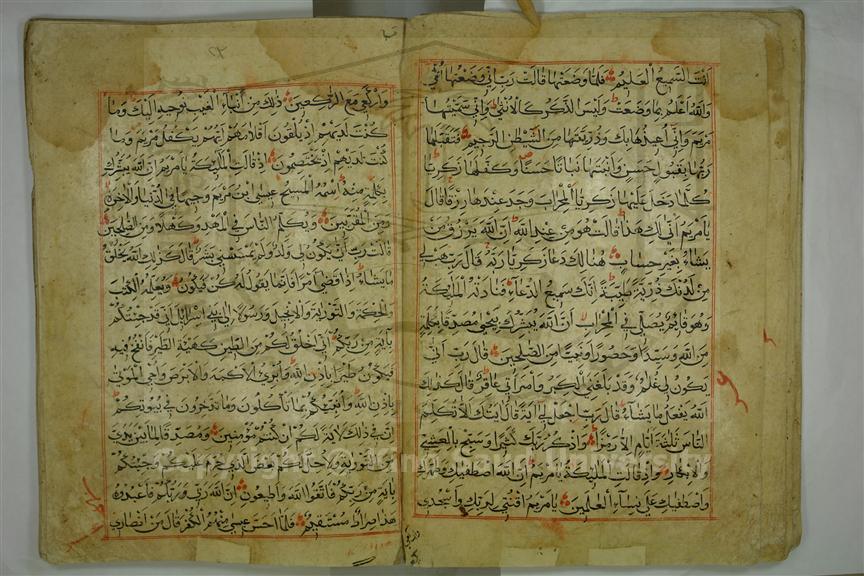 انت السميع العليم فلما وضعتها قالت رب اني وضعتها انثى
والله اعلم بما وضعت وليس الذكر كالانثى واني سميتها
مريم واني اعيذها بك وذريتها من الشيطن الرجيم فتقبلها
ربها بقبول حسن وانبتها نباتا حسنا وكفلها زكريا
كلما دخل عليها زكريا المحراب وجد عندها رزقا قال
يا مريم انى لك هذا قالت هو من عند الله ان الله يرزق من
يشاء بغير حساب هنالك دعا زكريا ربه قال رب هب لي
من لدنك ذرية طيبة انك سميع الدعاء فنادته الملئكة
وهو قايم يصلي في المحراب ان الله يبشرك بيحيى مصدقا بكلمة
من الله وسيدا وحصورا ونبيا من الصلحين قال رب انى
يكون لي غلم وقد بلغني الكبر وامراتي عاقر قال كذلك
الله يفعل ما يشاء قال رب اجعل لي اية قال ايتك الا تكلم
الناس ثلثة ايام الا رمزا واذكر ربك كثيرا وسبح بالعشي
والابكار واذ قالت الملئكة يا مريم ان الله اصطفيك وطهرك
واصطفيك على نساء العلمين يا مريم اقنتي لربك واسجدي
واركعي مع الركعين ذلك من انباء الغيب نوحيه اليك وما
كنت لديهم اذ يلقون اقلامهم ايهم يكفل مريم وما
كنت لديهم اذ يختصمون اذ قالت الملئكة يا مريم ان الله يبشرك
بكلمة منه اسمه المسيح عيسى ابن مريم وجيها في الدنيا والاخرة
ومن المقربين ويكلم الناس في المهد وكهلا ومن الصلحين
قالت رب انى يكون لي ولد ولم يمسسني بشر قال كذلك الله يخلق
ما يشاء اذا قضى امرا فانما يقول له كن فيكون ويعلمه الكتب
والحكمة والتورية والانجيل ورسولا الى بني اسرائيل اني قد جئتكم
باية من ربكم اني اخلق لكم من الطين كهيئة الطير فانفخ فيه
فيكون طيرا باذن الله وابرئ الاكمه والابرص واحي الموتى
باذن الله وانبئكم بما تاكلون وما تدخرون في بيوتكم
ان في ذلك لاية لكم ان كنتم مؤمنين ومصدقا لما بين يدي
من التورية ولاحل لكم بعض الذي حرم عليكم وجئتكم
باية من ربكم فاتقوا الله واطيعون ان الله ربي وربكم فاعبدوه
هذا صراط مستقيم فلما احس عيسى منهم الكفر قال من انصاري
Copyright © King Saud University